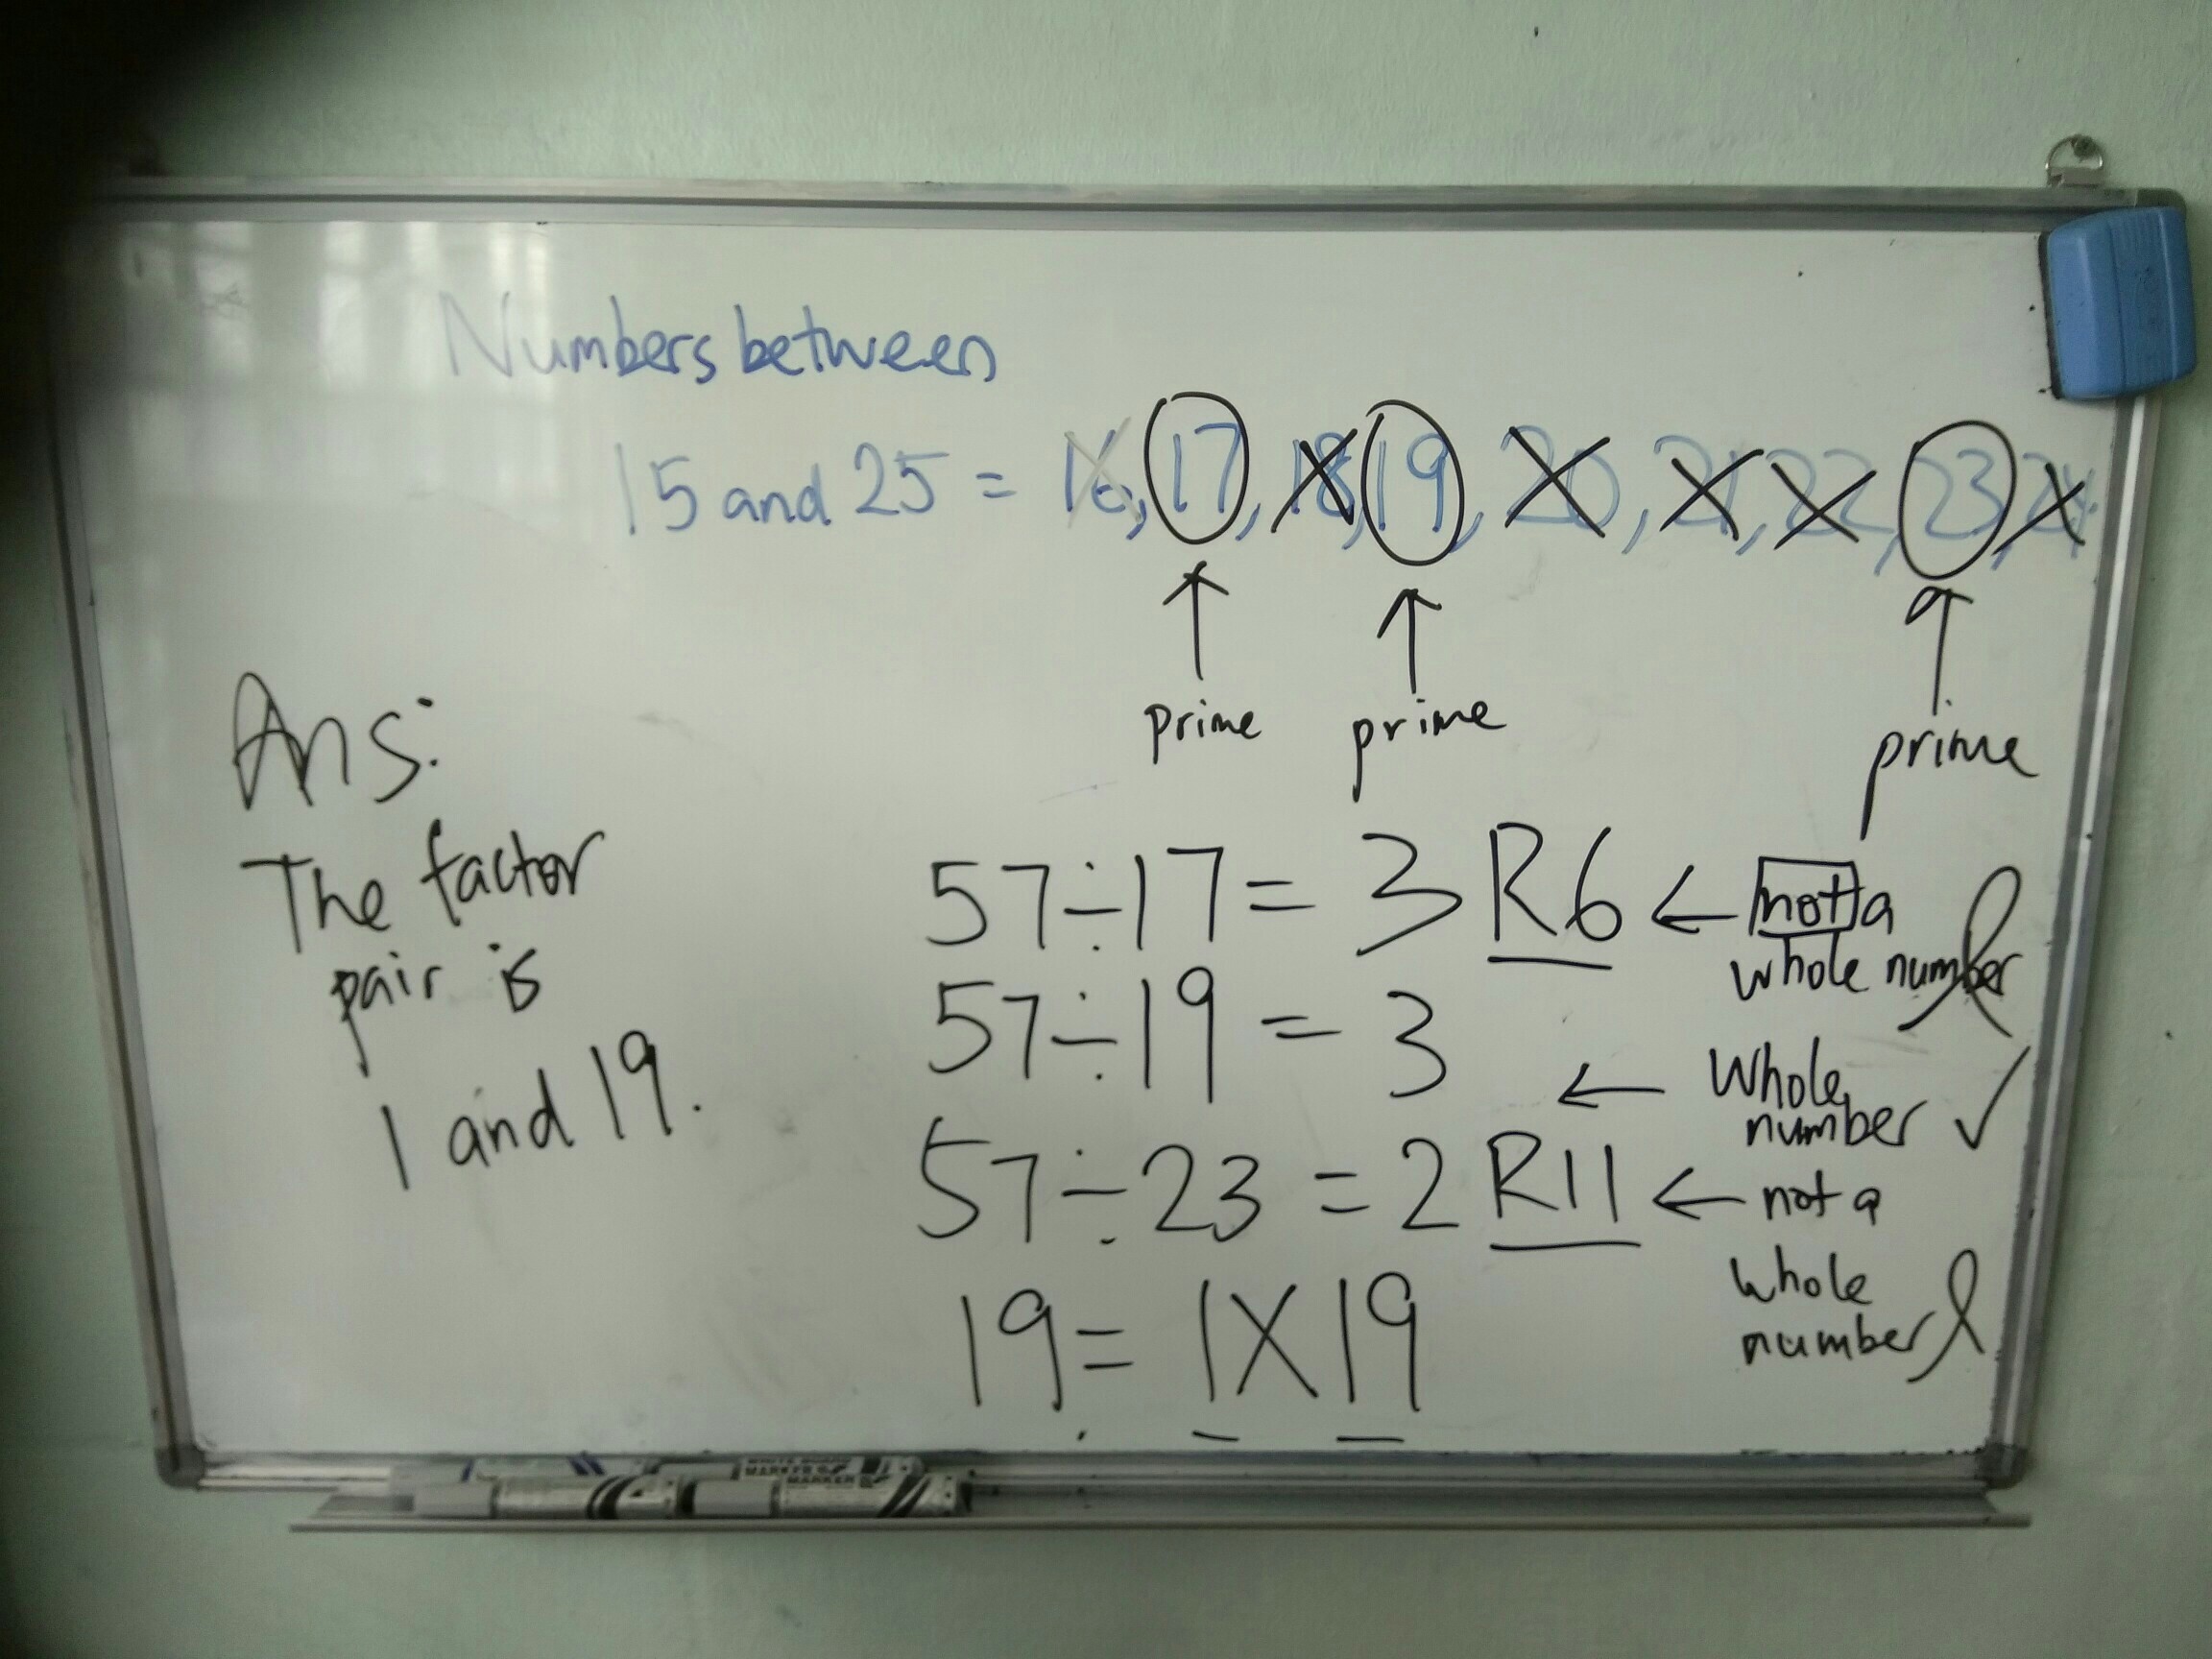 Numbers between
15 and 25 = 16, 17, 18, 19, 20, 21, 22, 23, 24
prime prime prime
Ans:
The factor
pair is
1 and 19.
57÷17 = 3 R6 ← not a
whole number
57÷19 = 3
← Whole
number ✓
57÷23 = 2 R11 ← not a
whole
number
19 = 1 X 19
MARKER
MARKER